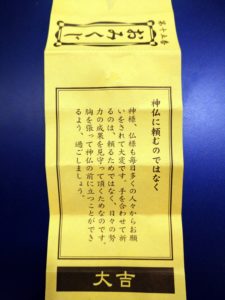 第十五番
おみくじ
神仏に頼むのではなく
神様、仏様も毎日多くの人々からお願
いをされて大変です。手を合わせて祈
るのは、頼るためではなく、日々の努
力の成果を見守って頂くためなのです。
胸を張って神仏の前に立つことができ
るよう、過ごしましょう。
大吉